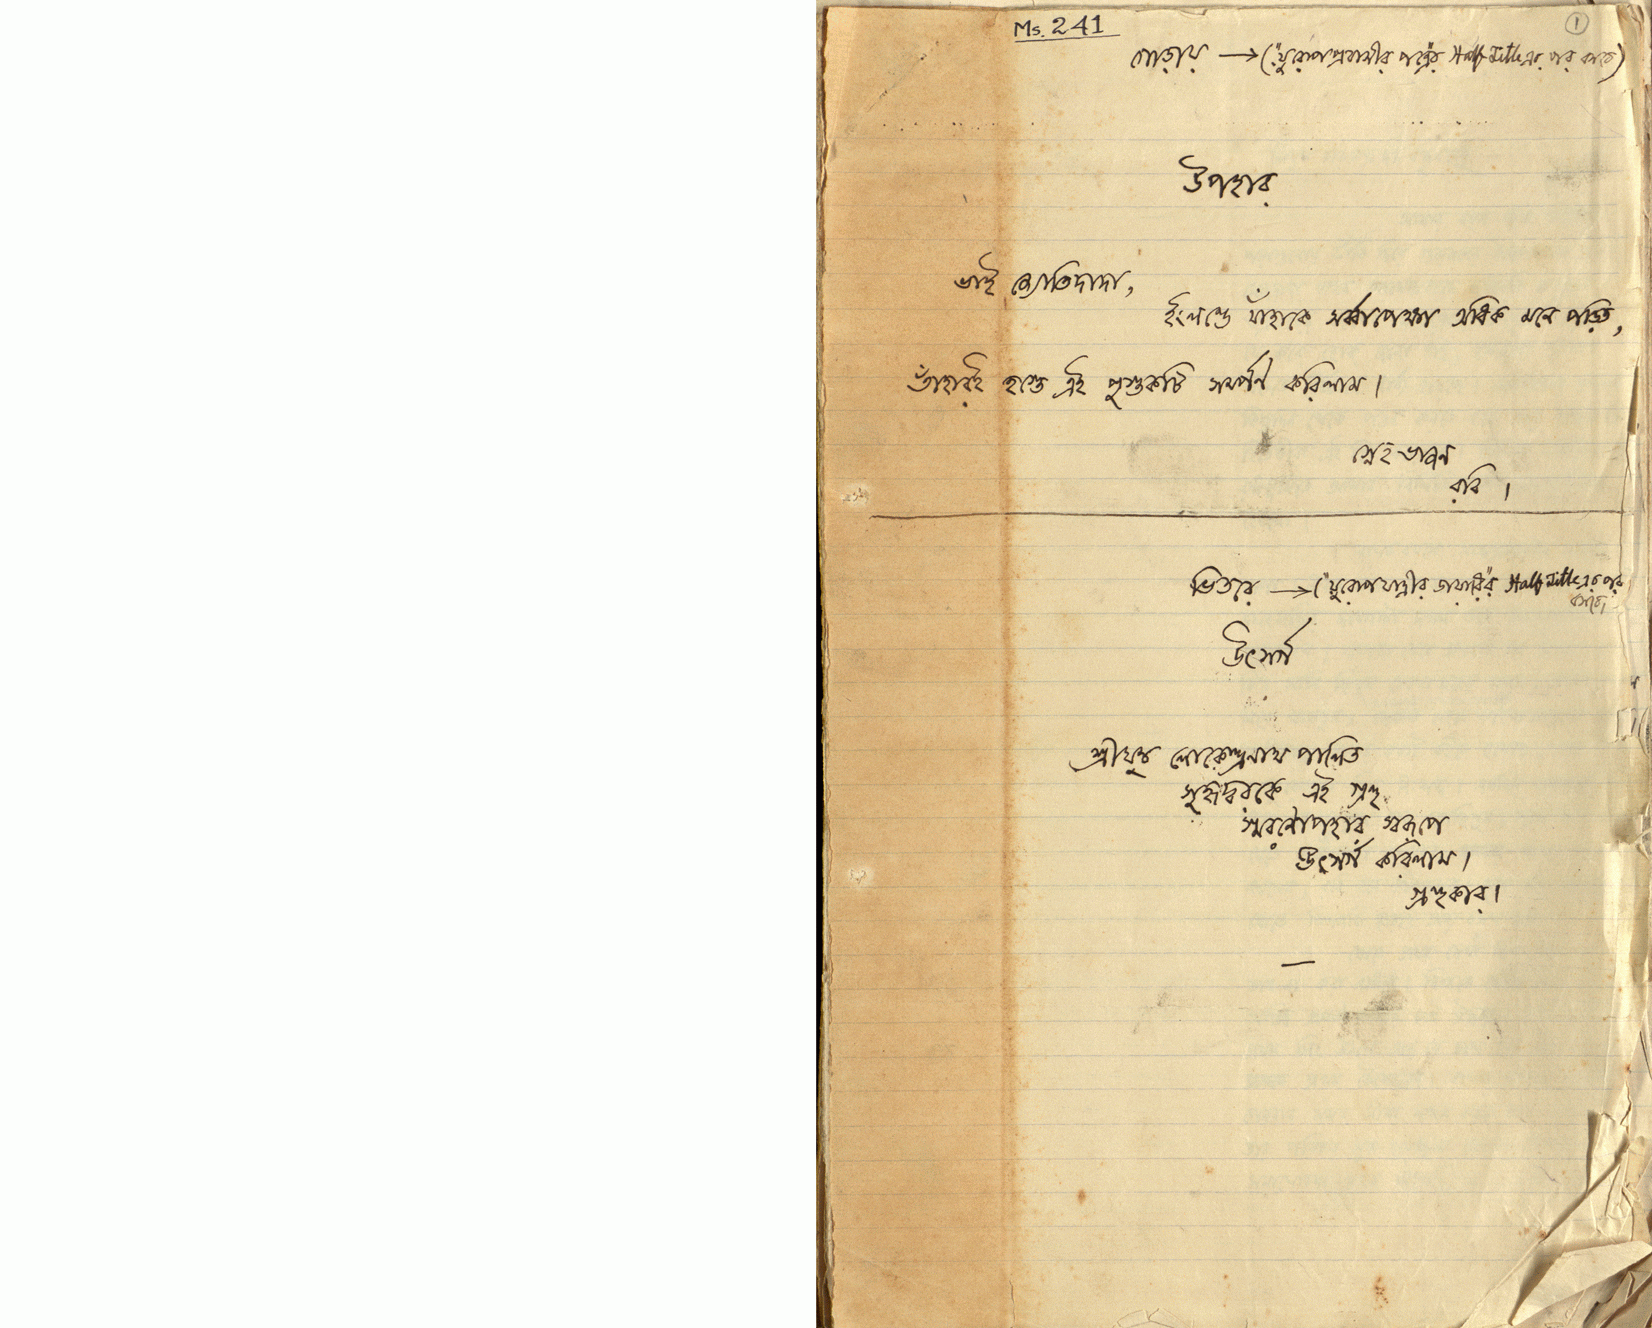 Ms. 241
১
গোড়ায় → ("য়ুরোপপ্রবাসীর পত্রে"র Half Title এর পর বসবে)
উপহার
ভাই জ্যোতিদাদা,
ইংলন্ডে যাঁহাকে সর্ব্বাপেক্ষা অধিক মনে পড়িত,
তাঁহারই হস্তে এই পুস্তকটি সমর্পণ করিলাম।
স্নেহভাজন
রবি।
ভিতরে → ("য়ুরোপযাত্রীর ডায়ারি"র Half Title এর পর
বসবে)
উৎসর্গ
শ্রীযুক্ত লোকেন্দ্রনাথ পালিত
সুহৃদ্বরকে এই গ্রন্থ
স্মরণোপহার স্বরূপে
উৎসর্গ করিলাম।
গ্রন্থকার।